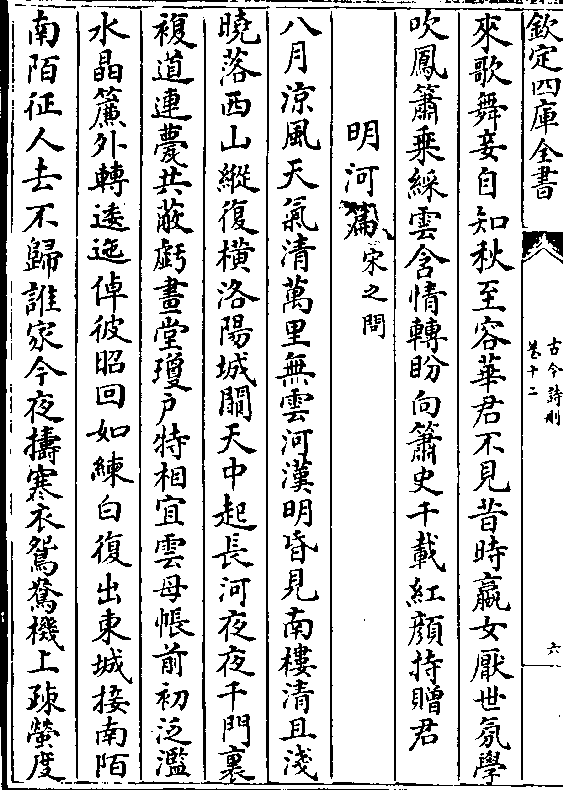 欽定四庫全書
古今詩刪
卷十二
六
來歌舞妾自知秋至容華君不見昔時嬴女厭世氛學
吹鳳簫乘綵雲含情轉盼向簫史千載紅顏持贈君
明河篇 宋之問
八月涼風天氣清萬里無雲河漢明昏見南樓清且淺
曉落西山縱復橫洛陽城闕天中起長河夜夜千門裏
複道連甍共蔽虧畫堂瓊户特相宜雲母帳前初泛濫
水晶簾外轉逶迤倬彼昭回如練白復出東城接南陌
南陌征人去不歸誰家今夜擣寒衣鴛鴦機上疎螢度